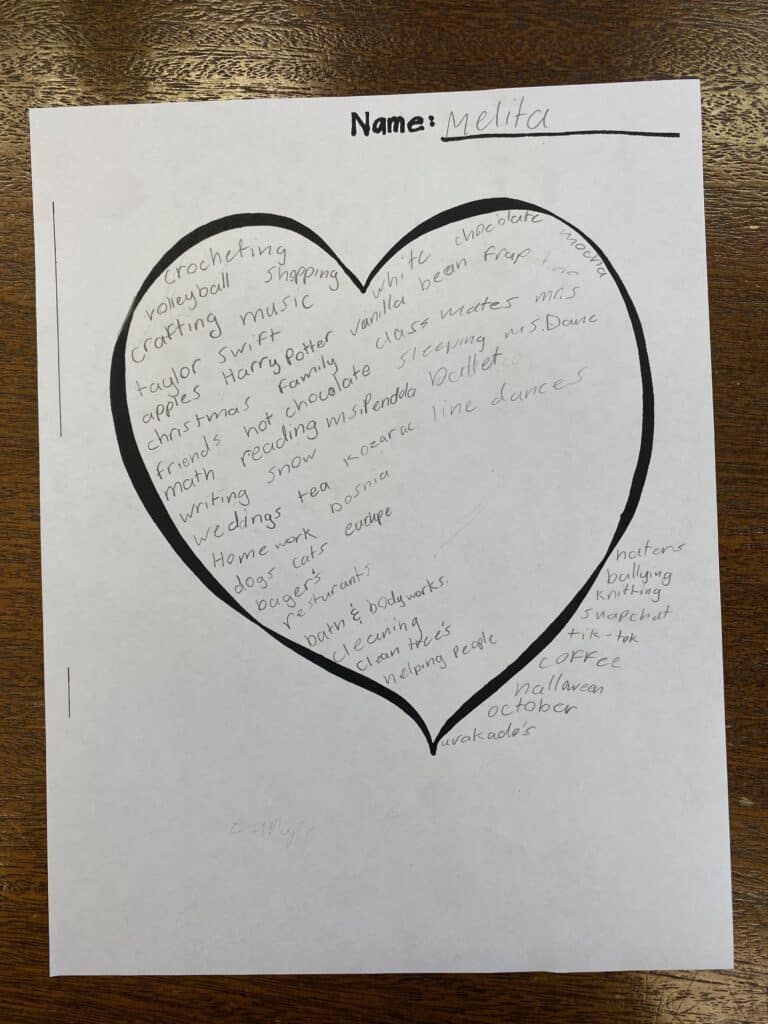 Name: Melita
crocheting
volleyball shopping white chocolate mocha
crafting music vanilla bean frap
taylor swift class mates mrs
apples Harry Potter sleeping ms.Dane
christmas family
friends hot chocolate ballet
math reading ms.Pendola
writing snow line dances
weddings tea Kozarac
Homework bosnia
dogs cats europe
bager's
resturants
bath & bodyworks.
cleaning
clean tree's
helping people
haters
bullying
knithing
snapchat
tik-tok
coffee
halloveen
october
avakado's